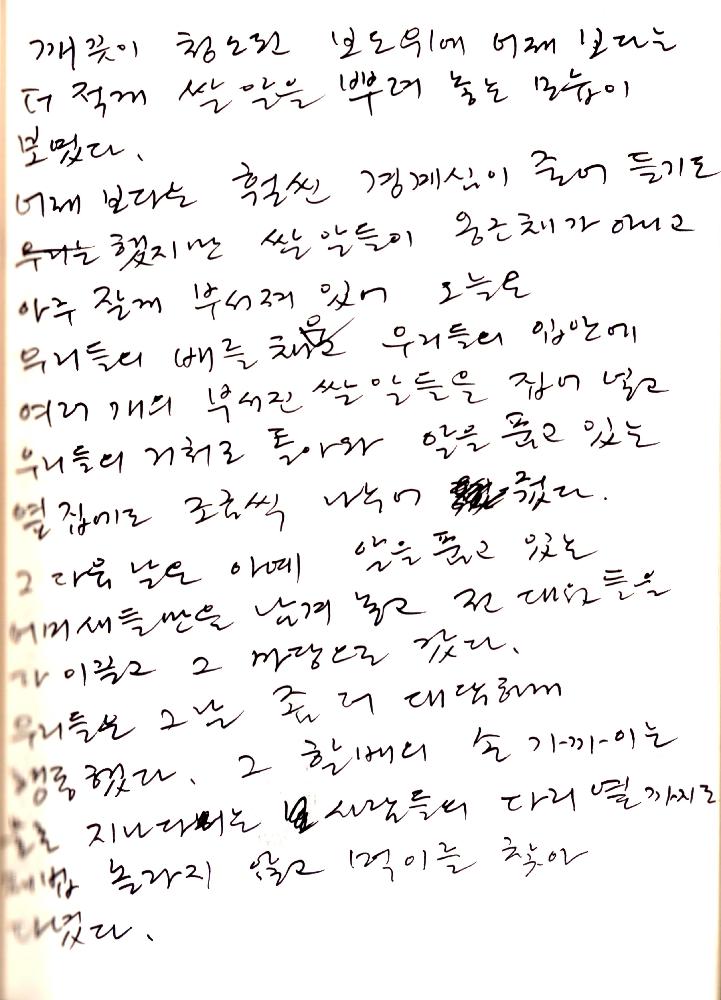 깨끗이 청소된 보도위에 어제 보다는
더 적게 쌀알을 뿌려 놓는 모습이
보였다.
어제 보다는 훨씬 경계심이 줄어 들기도
우리는 했지만 쌀알들이 온근채가 아니고
아주 잘게 부서져 있어 오늘은
우리들의 배를 채운 우리들의 입안에
여러 개의 부서진 쌀알들을 집어 넣고
우리들의 거처로 돌아와 알을 품고 있는
옆집에도 조금씩 나누어 줬다.
그 다음 날은 아예 알을 품고 있는
어미새들만을 남겨 놓고 전 대원들을
다 이끌고 그 마당으로 갔다.
우리들은 그날 좀 더 대담하게
행동했다. 그 할배의 손 가까이는
지나다니는 사람들의 다리 옆까지도
제법 놀라지 않고 먹이를 찾아
다녔다.